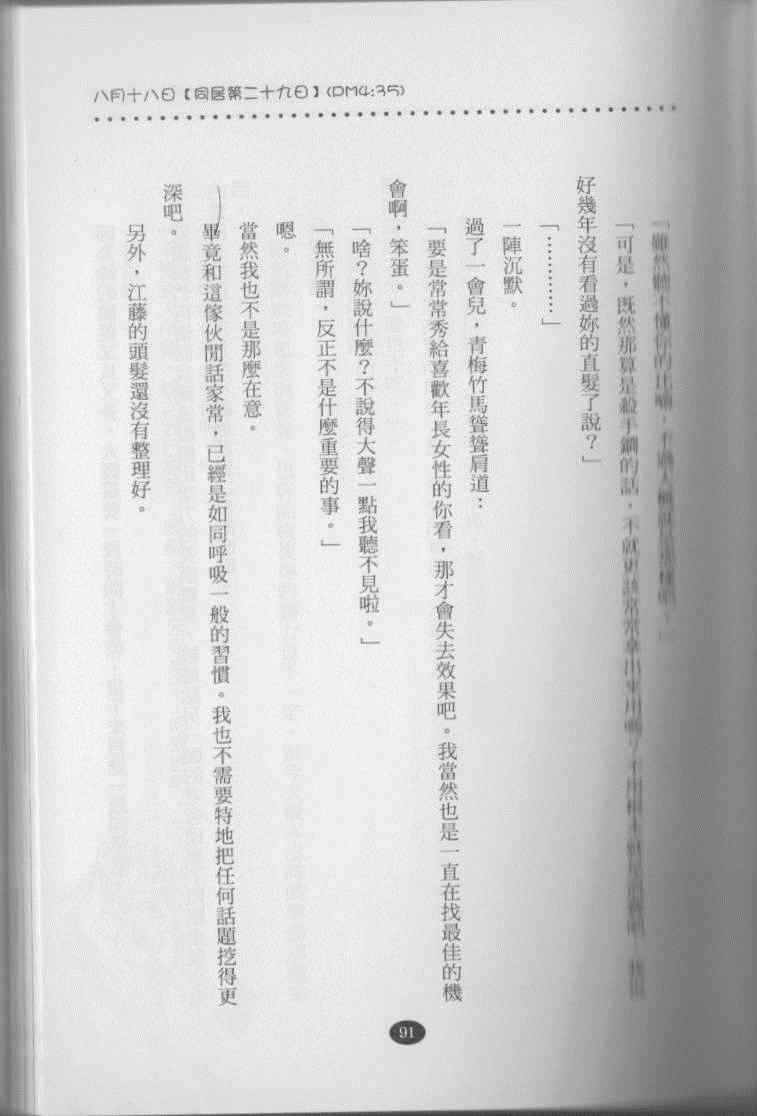 八月十八日【同居第二十九日】(PM4:35)
「雖然聽不懂你的比喻，
「可是，既然那算是殺手鐧的話，不就更該常常拿出來用嗎？
好幾年沒有看過妳的直髮了說？」
「…………」
一陣沉默。
過了一會兒，青梅竹馬聳聳肩道：
「要是常常秀給喜歡年長女性的你看，那才會失去效果吧。我當然也是一直在找最佳的機
會啊，笨蛋。」
「啥？妳說什麼？不說得大聲一點我聽不見啦。」
「無所謂，反正不是什麼重要的事。」
嗯。
當然我也不是那麼在意。
畢竟和這傢伙閒話家常，已經是如同呼吸一般的習慣。我也不需要特地把任何話題挖得更
深吧。
另外，江藤的頭髮還沒有整理好。
91